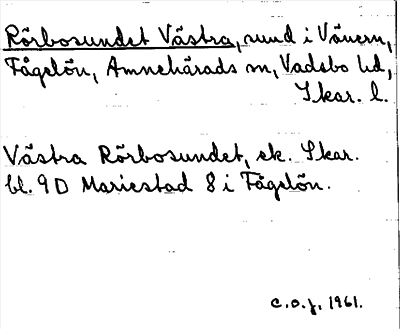 Rörbosundet Västra, sund i Vänern,
Fågelön, Amnehärads sn, Vadsbo hd,
Skar. l.
Västra Rörbosundet, ek. Skar.
bl. 9D Mariestad 8 i Fågelön.
C.O.J. 1961.